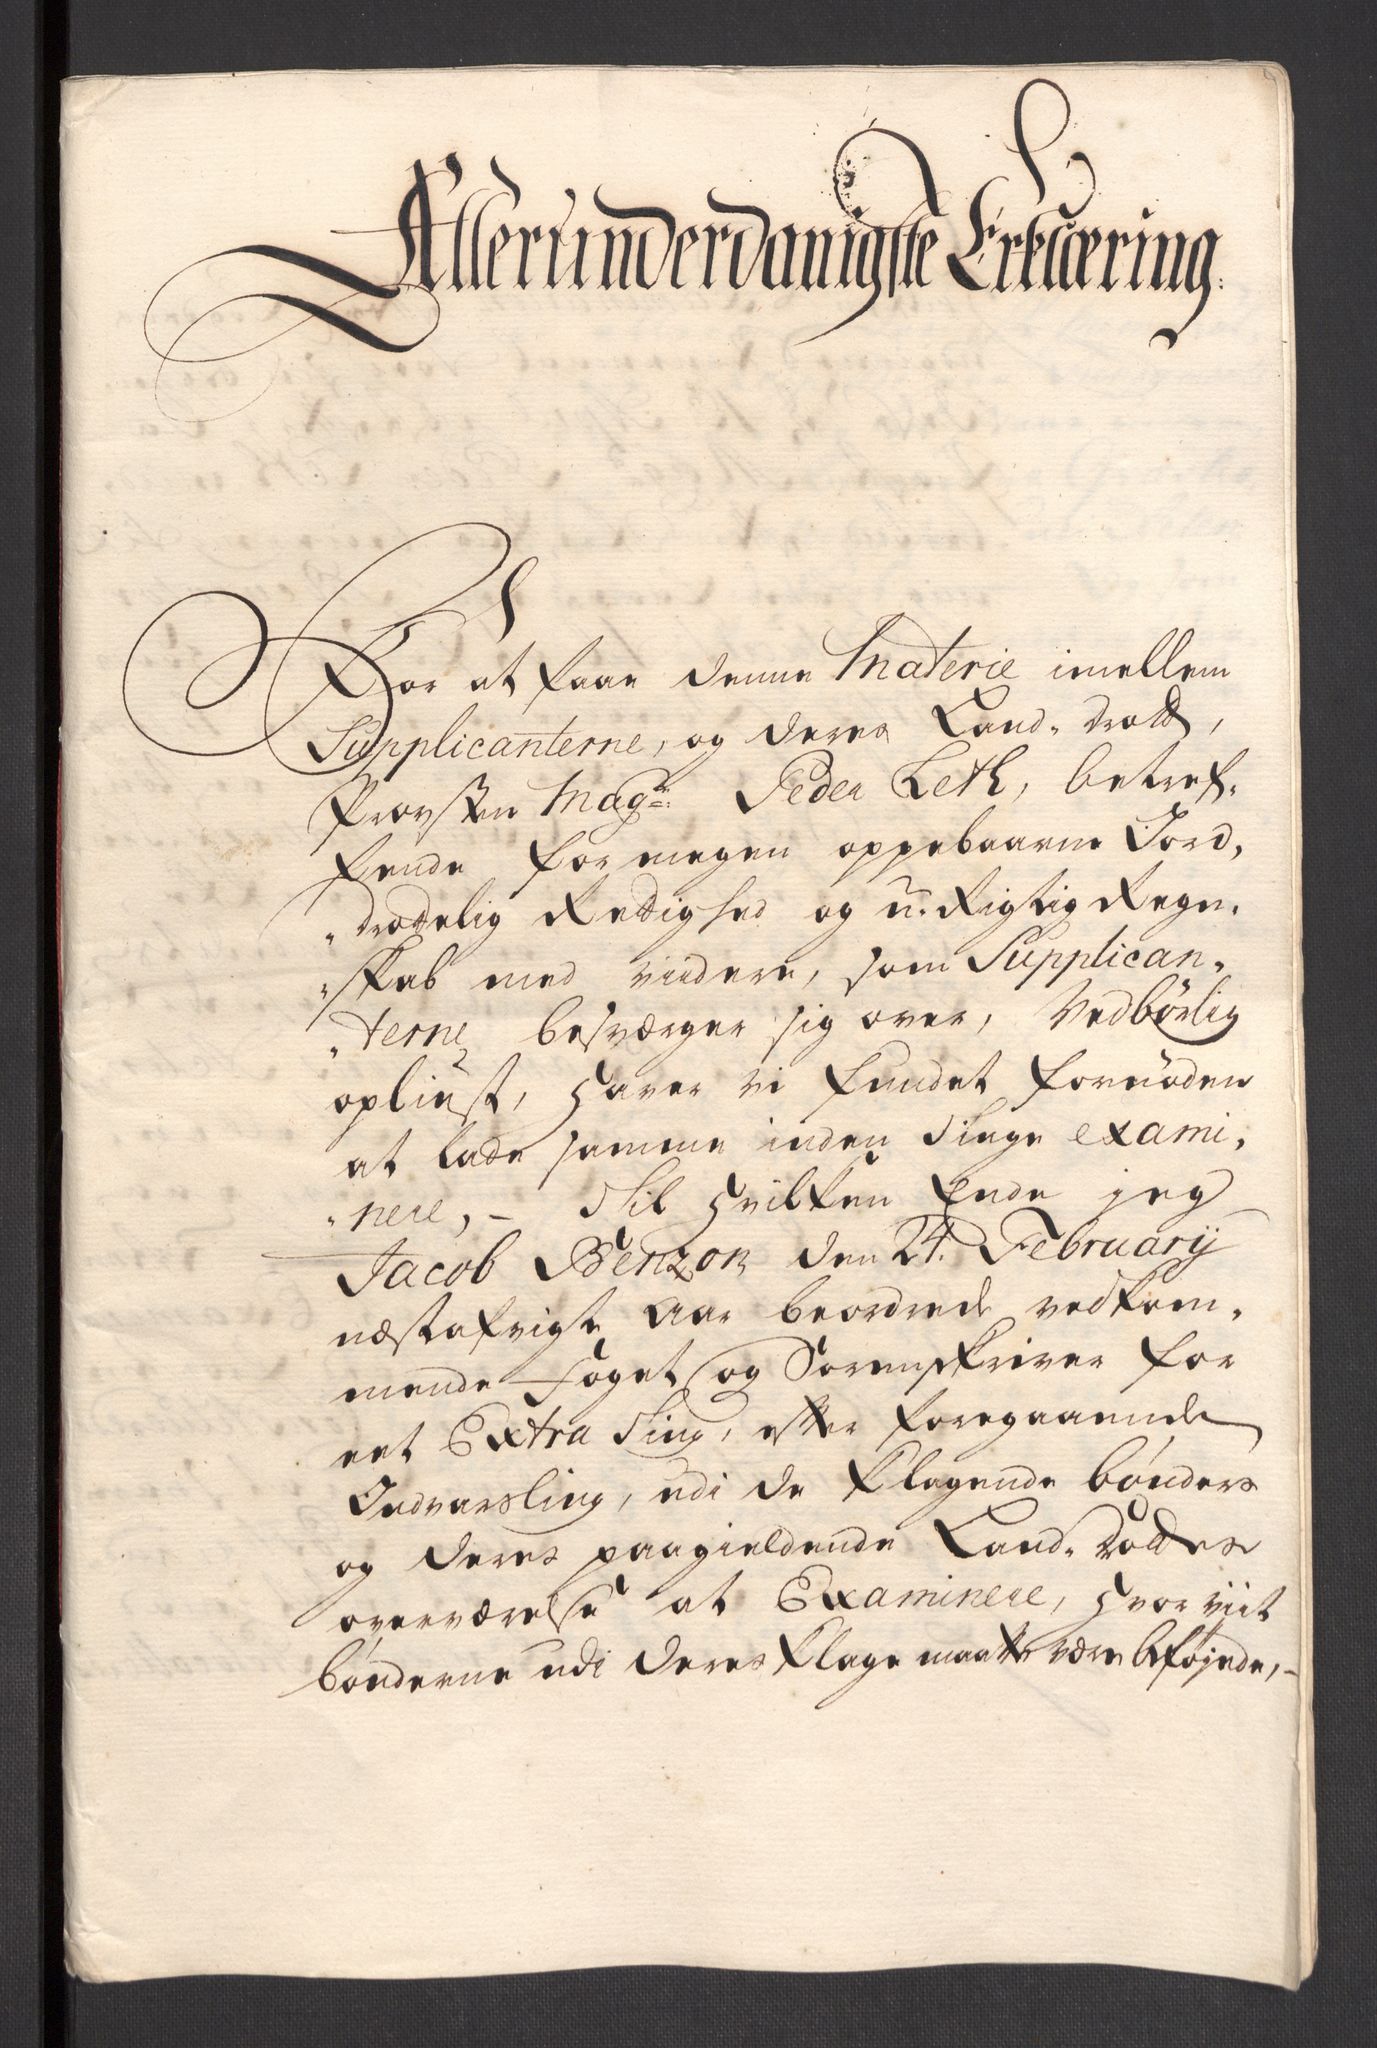 Allerunderdanigste Erklæring.
For at faae denne Materie imellem
Supplicanterne, og deres Land-drott,
Provsten Mag: Peder Leth, betref-
fende for megen oppebaarne Jord,
"drottelig Rettighed og u-Rigtig Regn-
"skab med viidere, som Supplican-
"terne besværger sig over, Vedbørlig
opliust, haver vi fundet fornøden
at lade samme inden Tinge exami-
"nere, - Til hvilken Ende jeg
Jacob Benzon den 24. February
næstafvigte Aar beordrede vedkom-
mende Foget og Sorenskriver for
eet Extra Ting, efter foregaaende
Indvarsling, udi de klagende bønders
og deres paagieldende Land-Dottes
overværelse at Examinere, hvor viit
bønderne udi deres klage maatte være beføjede,-